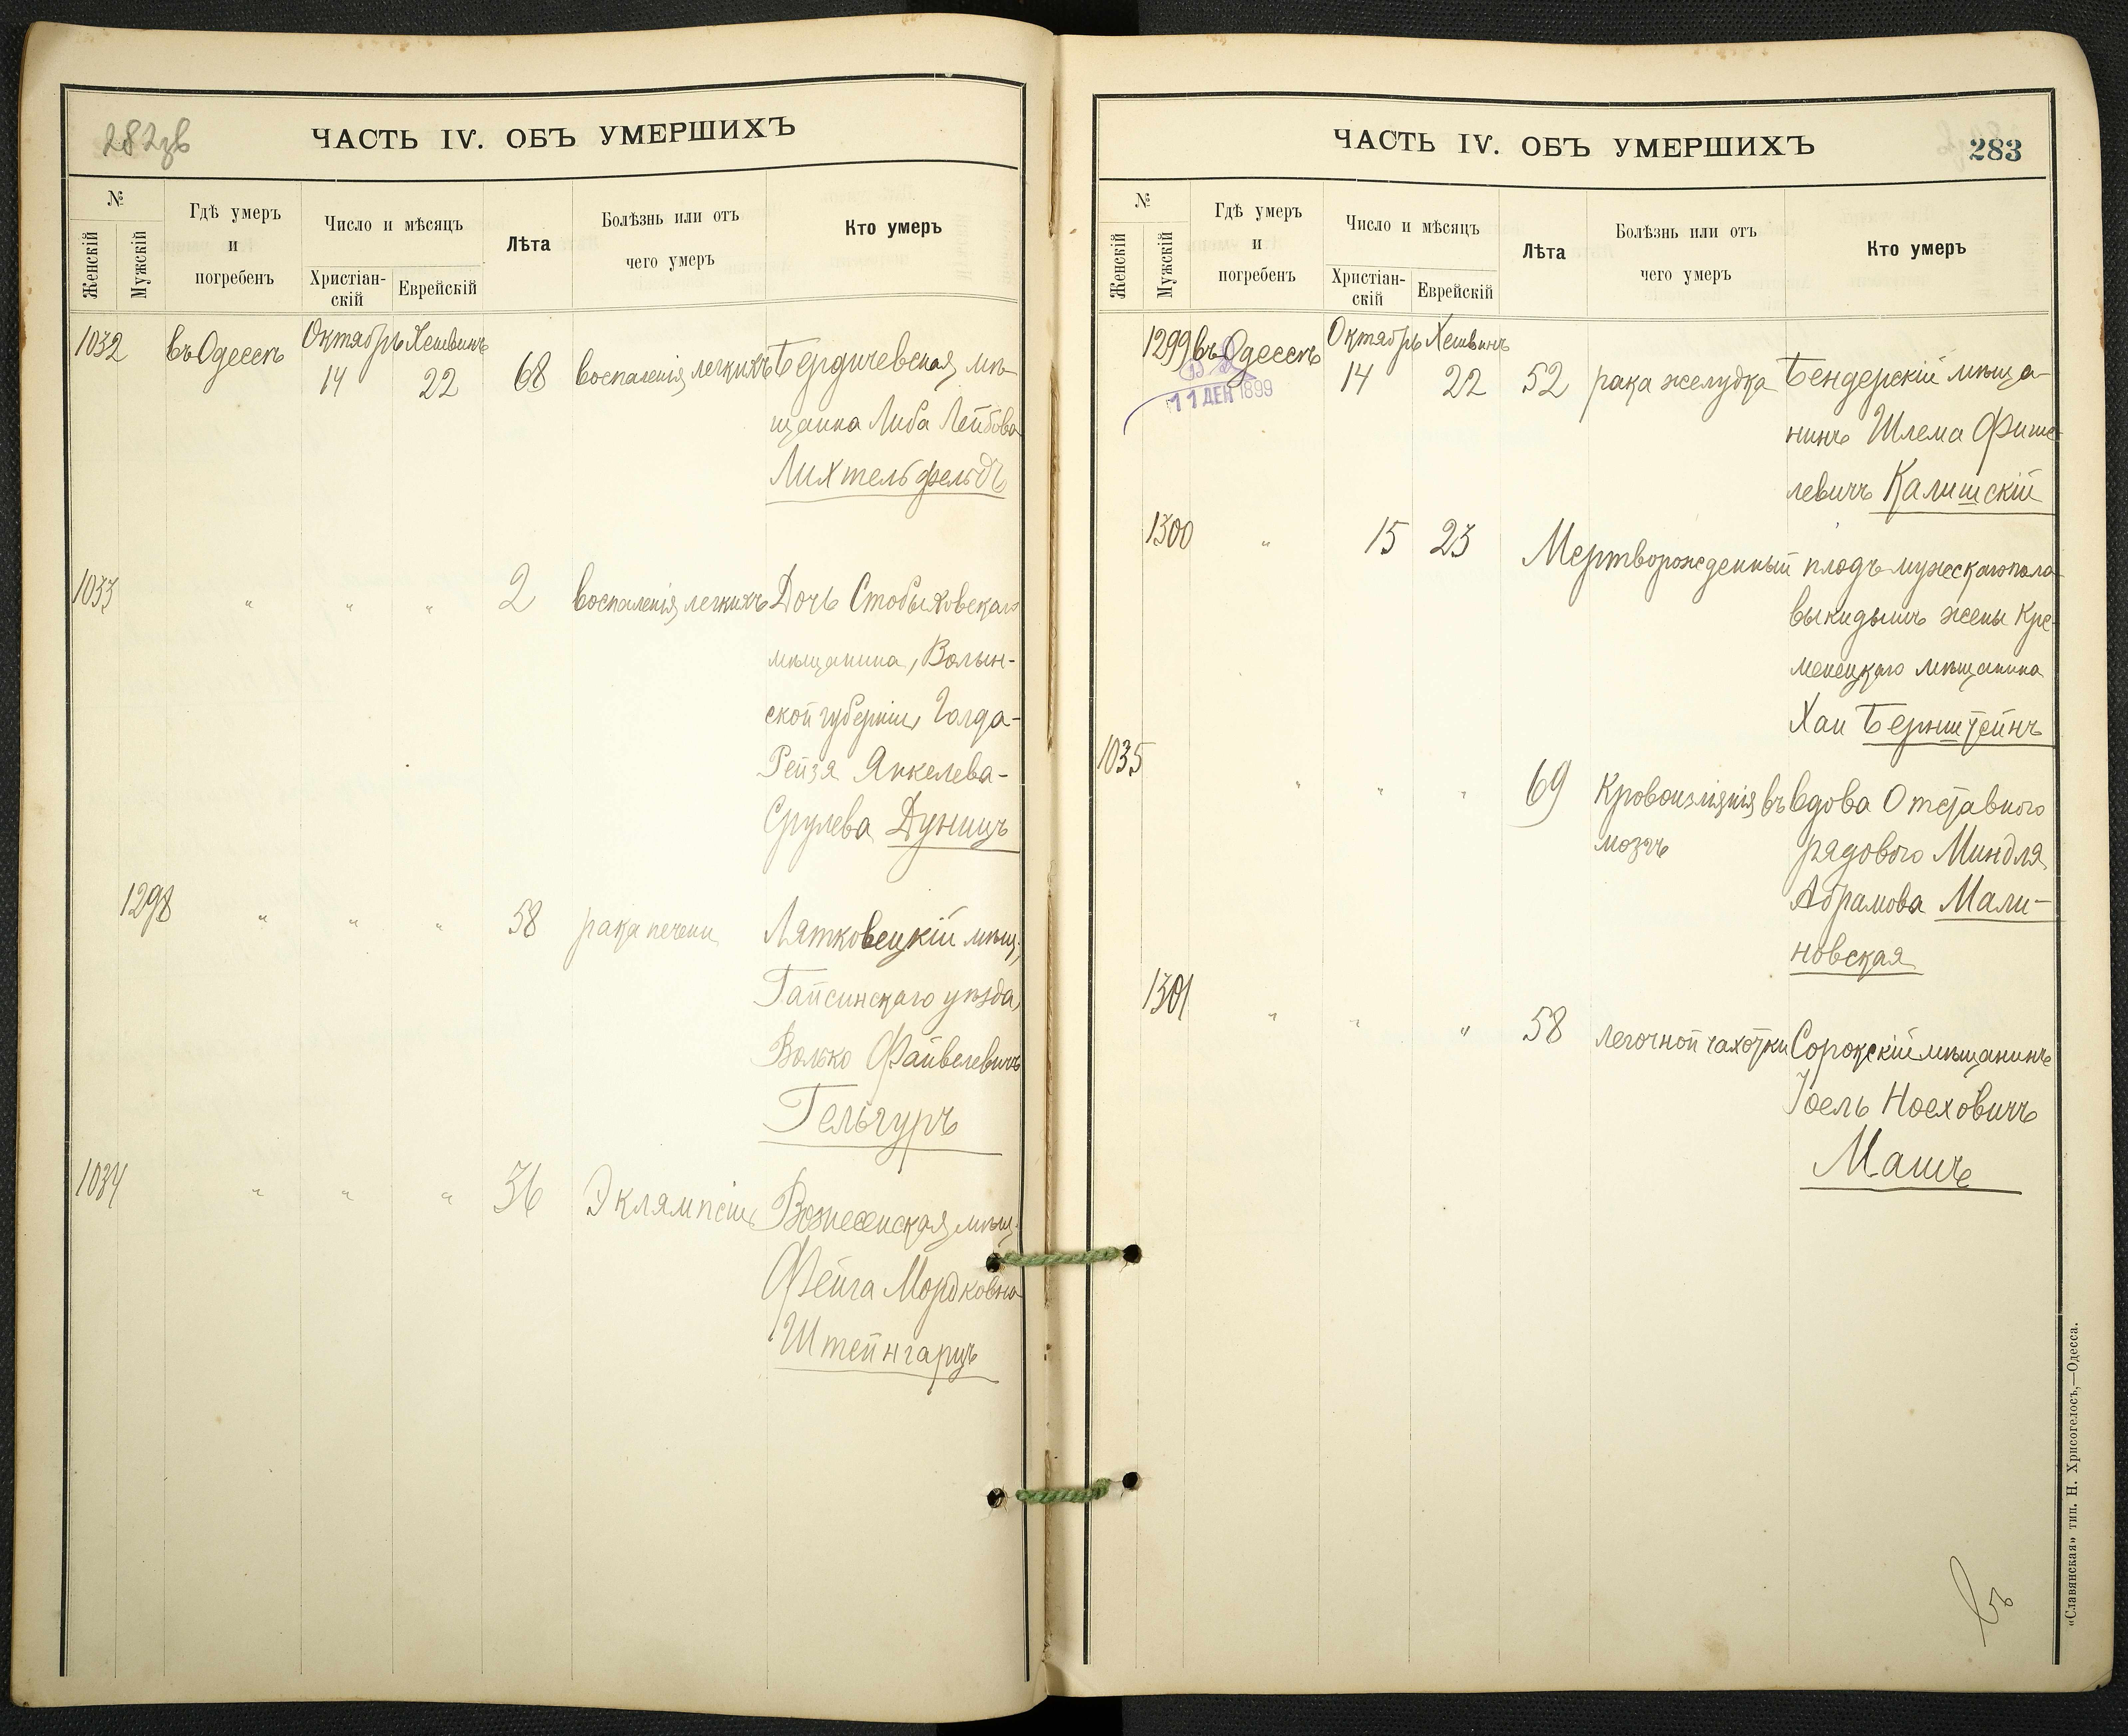 282зв
ЧАСТЬ IV. ОБЪ УМЕРШИХЪ
№
Женскій
Мужскій
Гдѣ умеръ
и
погребенъ
Число и мѣсяцъ
Христіан-
скій
Еврейскій
Лѣта
Болѣзнь или отъ
чего умеръ
Кто умеръ
1032 въ Одессѣ Октябрь Хешвинъ
14 22 68 воспаленія легкихъ Бердичевская мѣ-
щанка Либа Лейбова
Лихтельфельдъ
1033 " " " 2 воспаленія легкихъ Дочь Стобыховскаго
мѣщанина, Волын-
ской губерніи, Голда-
Рейзя Янкелева-
Срулева Дуницъ
1298 " " " 58 рака печени Лятковецкій мѣщ.,
Гайсинскаго уѣзда,
Волько Файвелевичъ
Гельгуръ
1034 " " " 36 Эклямпсіи Вознесенская мѣщ.
Фейга Мордковна
Штейнгарцъ
ЧАСТЬ IV. ОБЪ УМЕРШИХЪ
283
№
Женскій
Мужскій
Гдѣ умеръ
и
погребенъ
Число и мѣсяцъ
Христіан-
скій
Еврейскій
Лѣта
Болѣзнь или отъ
чего умеръ
Кто умеръ
1299 въ Одессѣ Октябрь Хешвинъ
14 22 52 рака желудка Бендерскій мѣща-
11 ДЕК 1899
нинъ Шлема Фише-
левичъ Калишскій
1300 " 15 23 Мертворожденный плодъ мужескаго пола
выкидышъ жены Кре-
менецкаго мѣщанина
Хаи Бернштейнъ
1035 " " " 69 Кровоизліянія въ вдова Отставного
мозгъ рядового Миндля
Абрамова Мали-
новская
1301 " " " 58 легочной чахотки Сорокскій мѣщанинъ
Іоель Ноеховичъ
Машъ
въ
«Славянская» тип. Н. Хрисогелосъ,—Одесса.